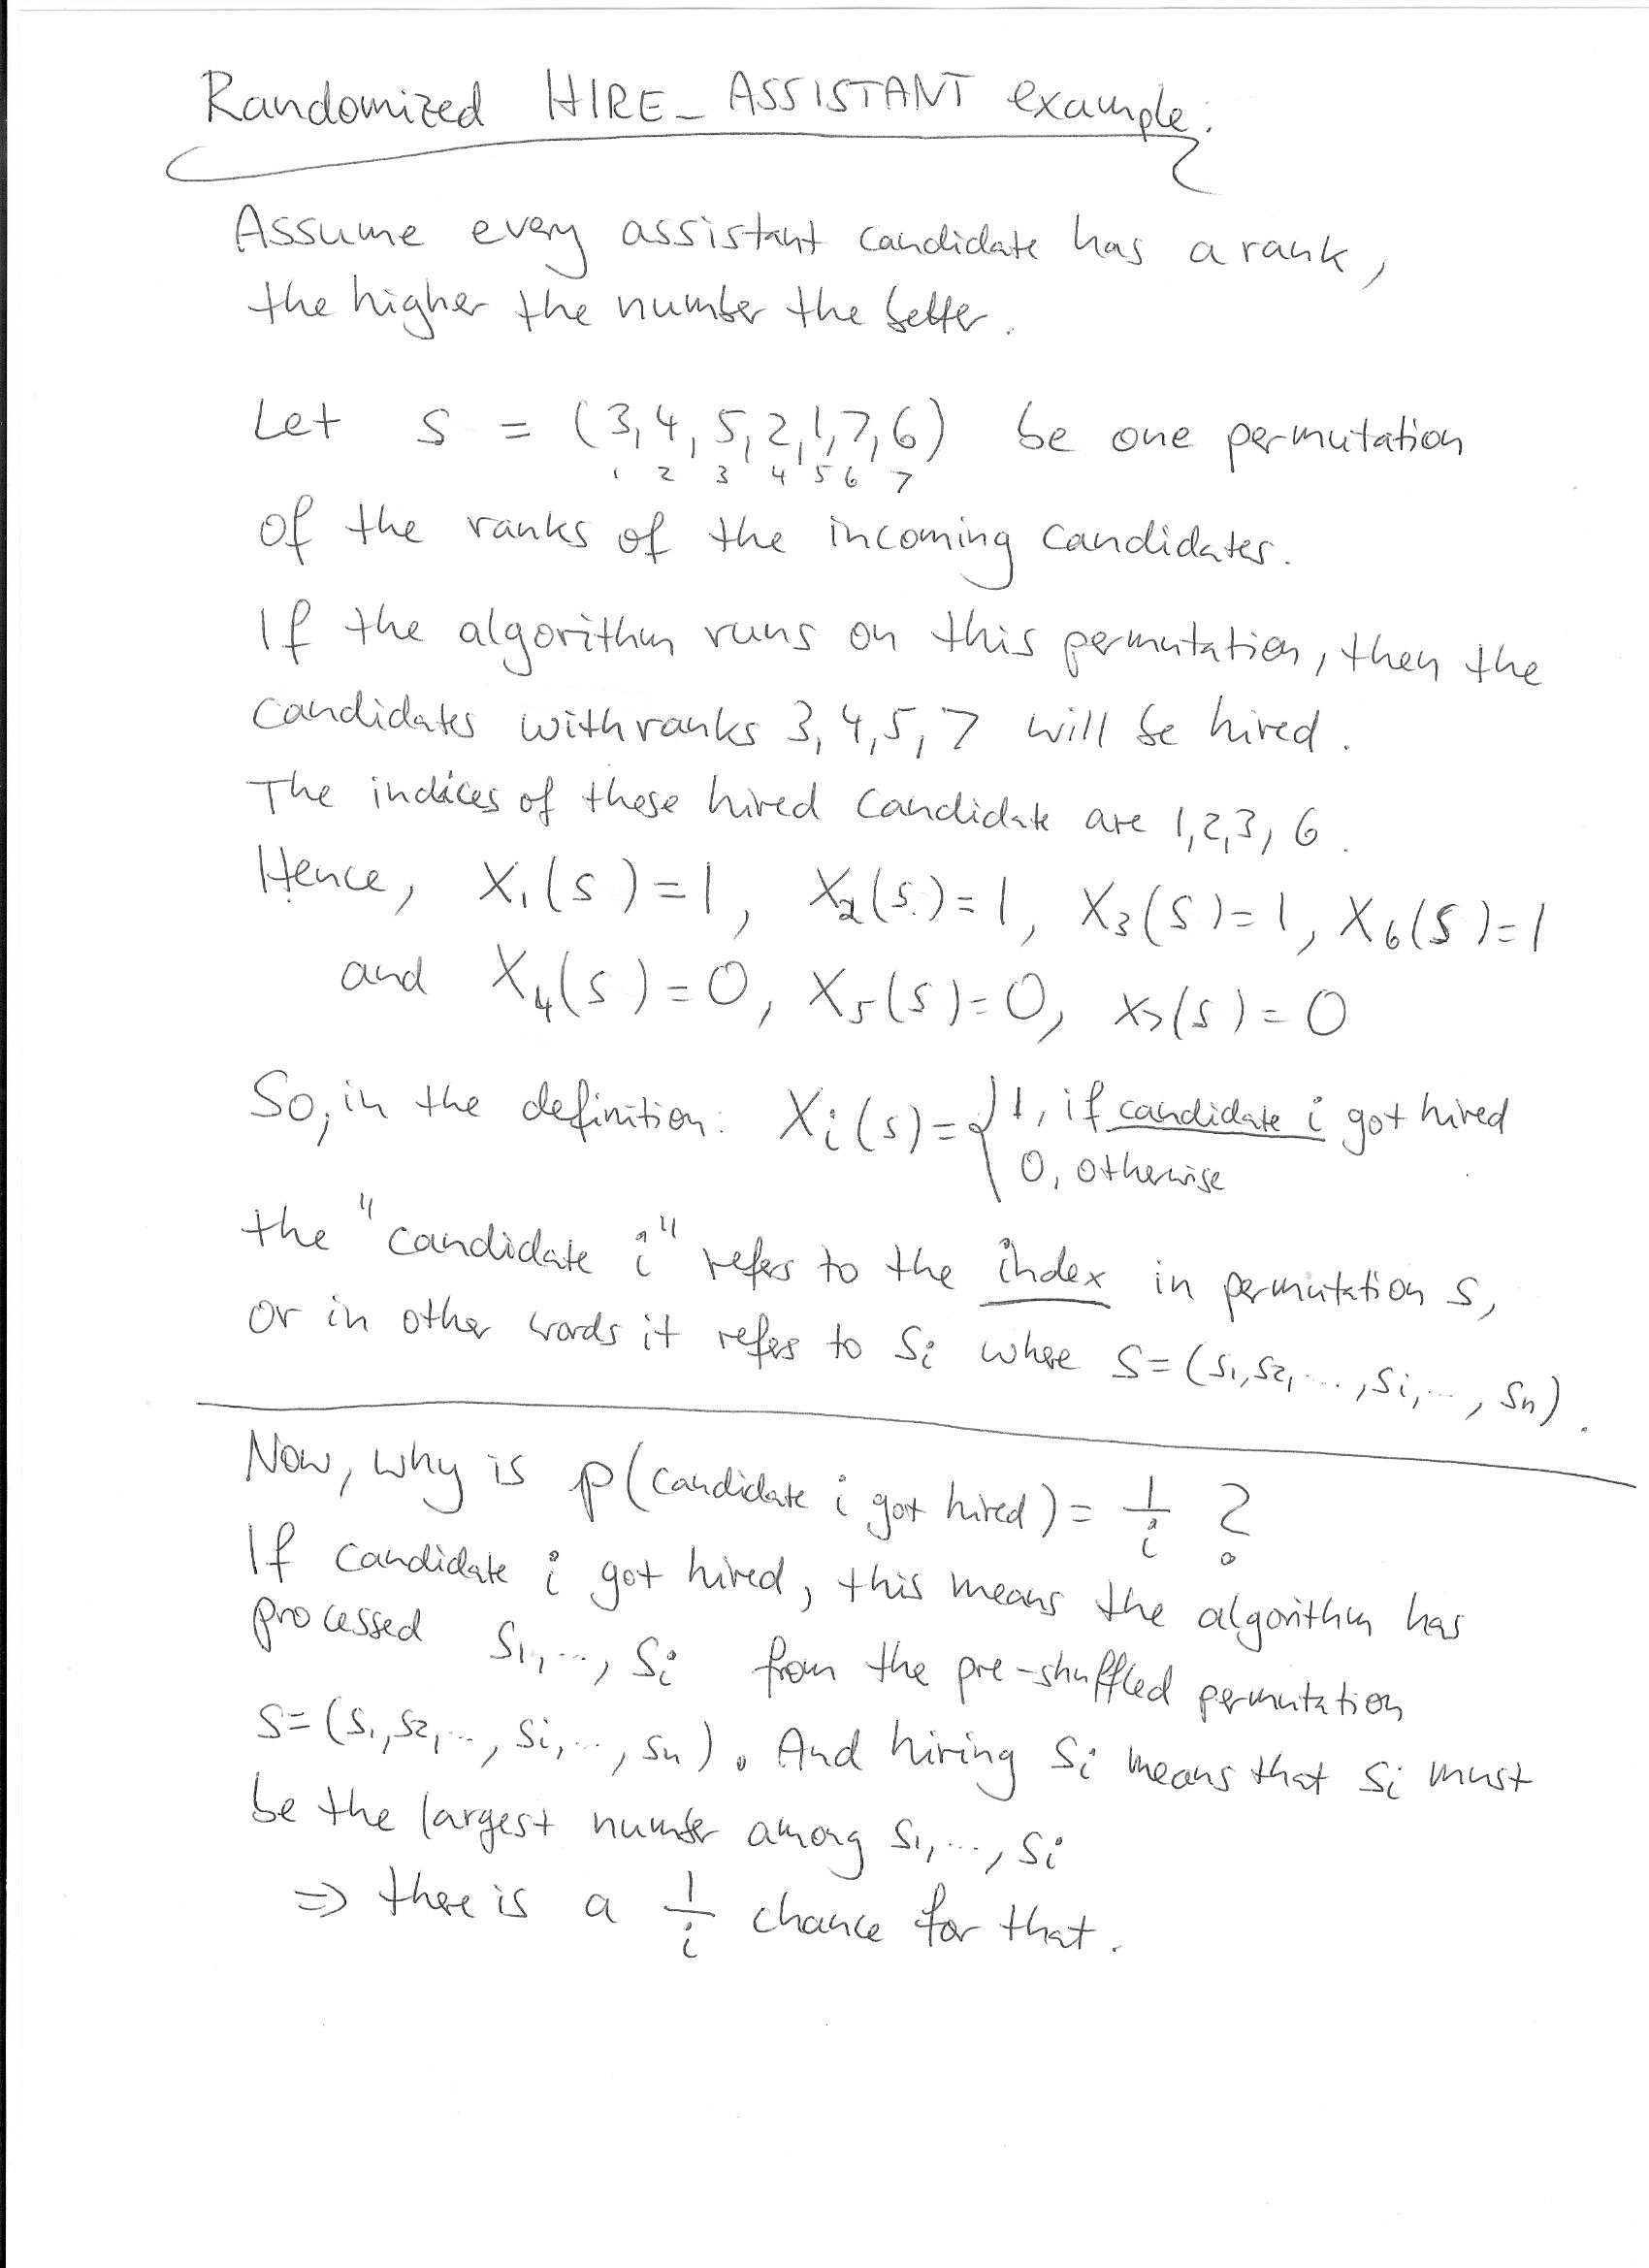 Randomized HIRE_ASSISTANT example:
Assume every assistant candidate has a rank,
the higher the number the better.
Let s = (3,4,5,2,1,7,6) be one permutation
1 2 3 4 5 6 7
of the ranks of the incoming candidates.
If the algorithm runs on this permutation, then the
candidates with ranks 3,4,5,7 will be hired.
The indices of these hired candidate are 1,2,3,6.
Hence, X₁(s)=1, X₂(s)=1, X₃(s)=1, X₆(s)=1
and X₄(s)=0, X₅(s)=0, X₇(s)=0
So, in the definition: Xᵢ(s)={1, if candidate i got hired
0, otherwise
the "candidate i" refers to the index in permutation s,
or in other words it refers to sᵢ where s=(s₁,s₂,...,sᵢ,...,sₙ).
Now, why is p(candidate i got hired)=1/i ?
If candidate i got hired, this means the algorithm has
processed s₁,...,sᵢ from the pre-shuffled permutation
s=(s₁,s₂,...,sᵢ,...,sₙ). And hiring sᵢ means that sᵢ must
be the largest number among s₁,...,sᵢ
⇒ there is a 1/i chance for that.